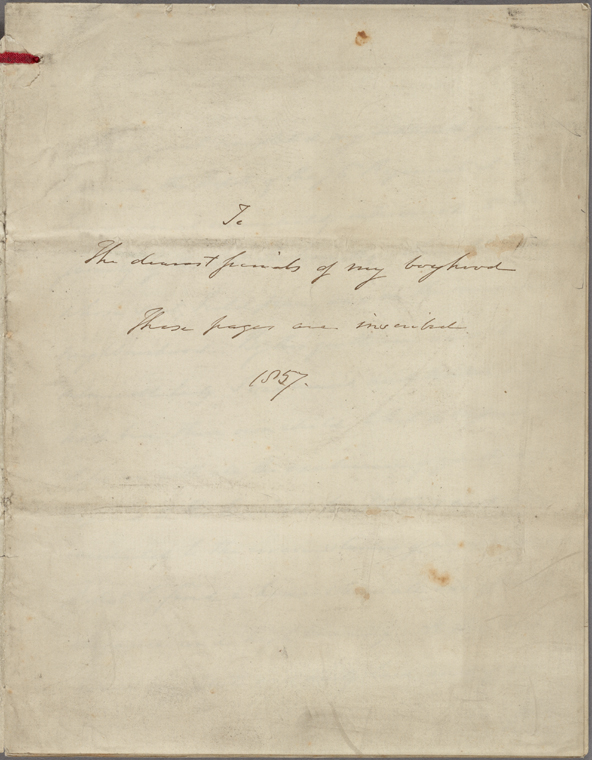 To
The dearest friends of my boyhood
These pages are inscribed
1857.